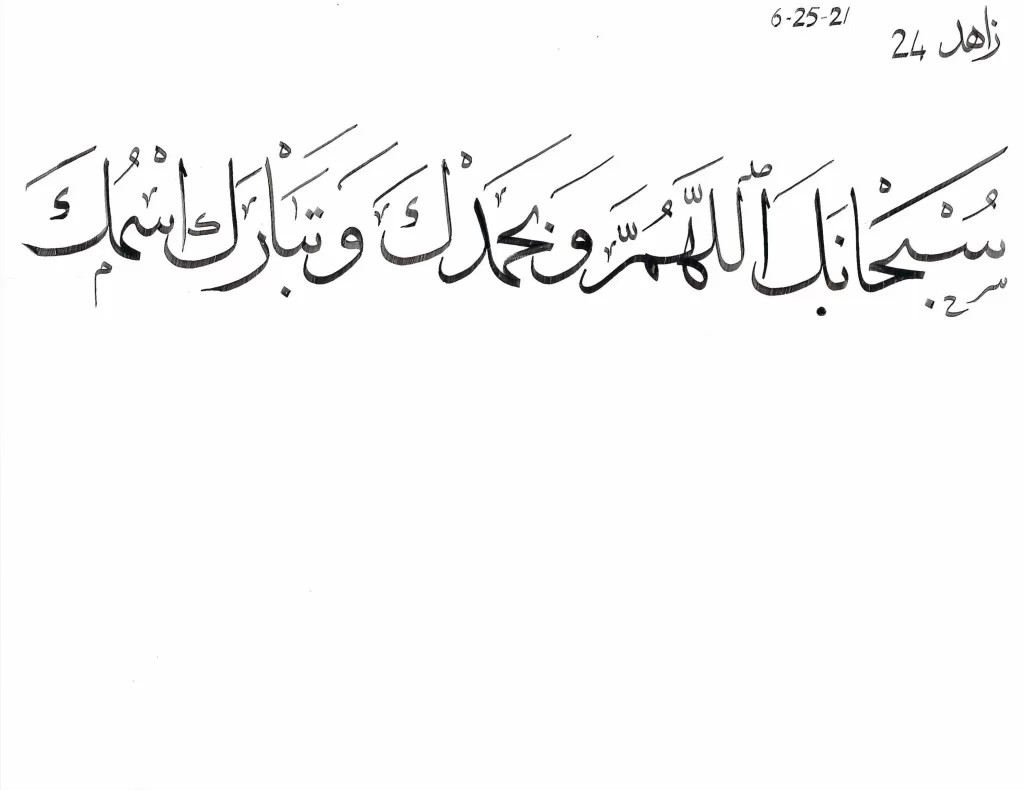 6-25-21
زاهد 24
سُبْحَانَكَ اللَّهُمَّ وَبِحَمْدِكَ وَتَبَارَكَ اسْمُكَ